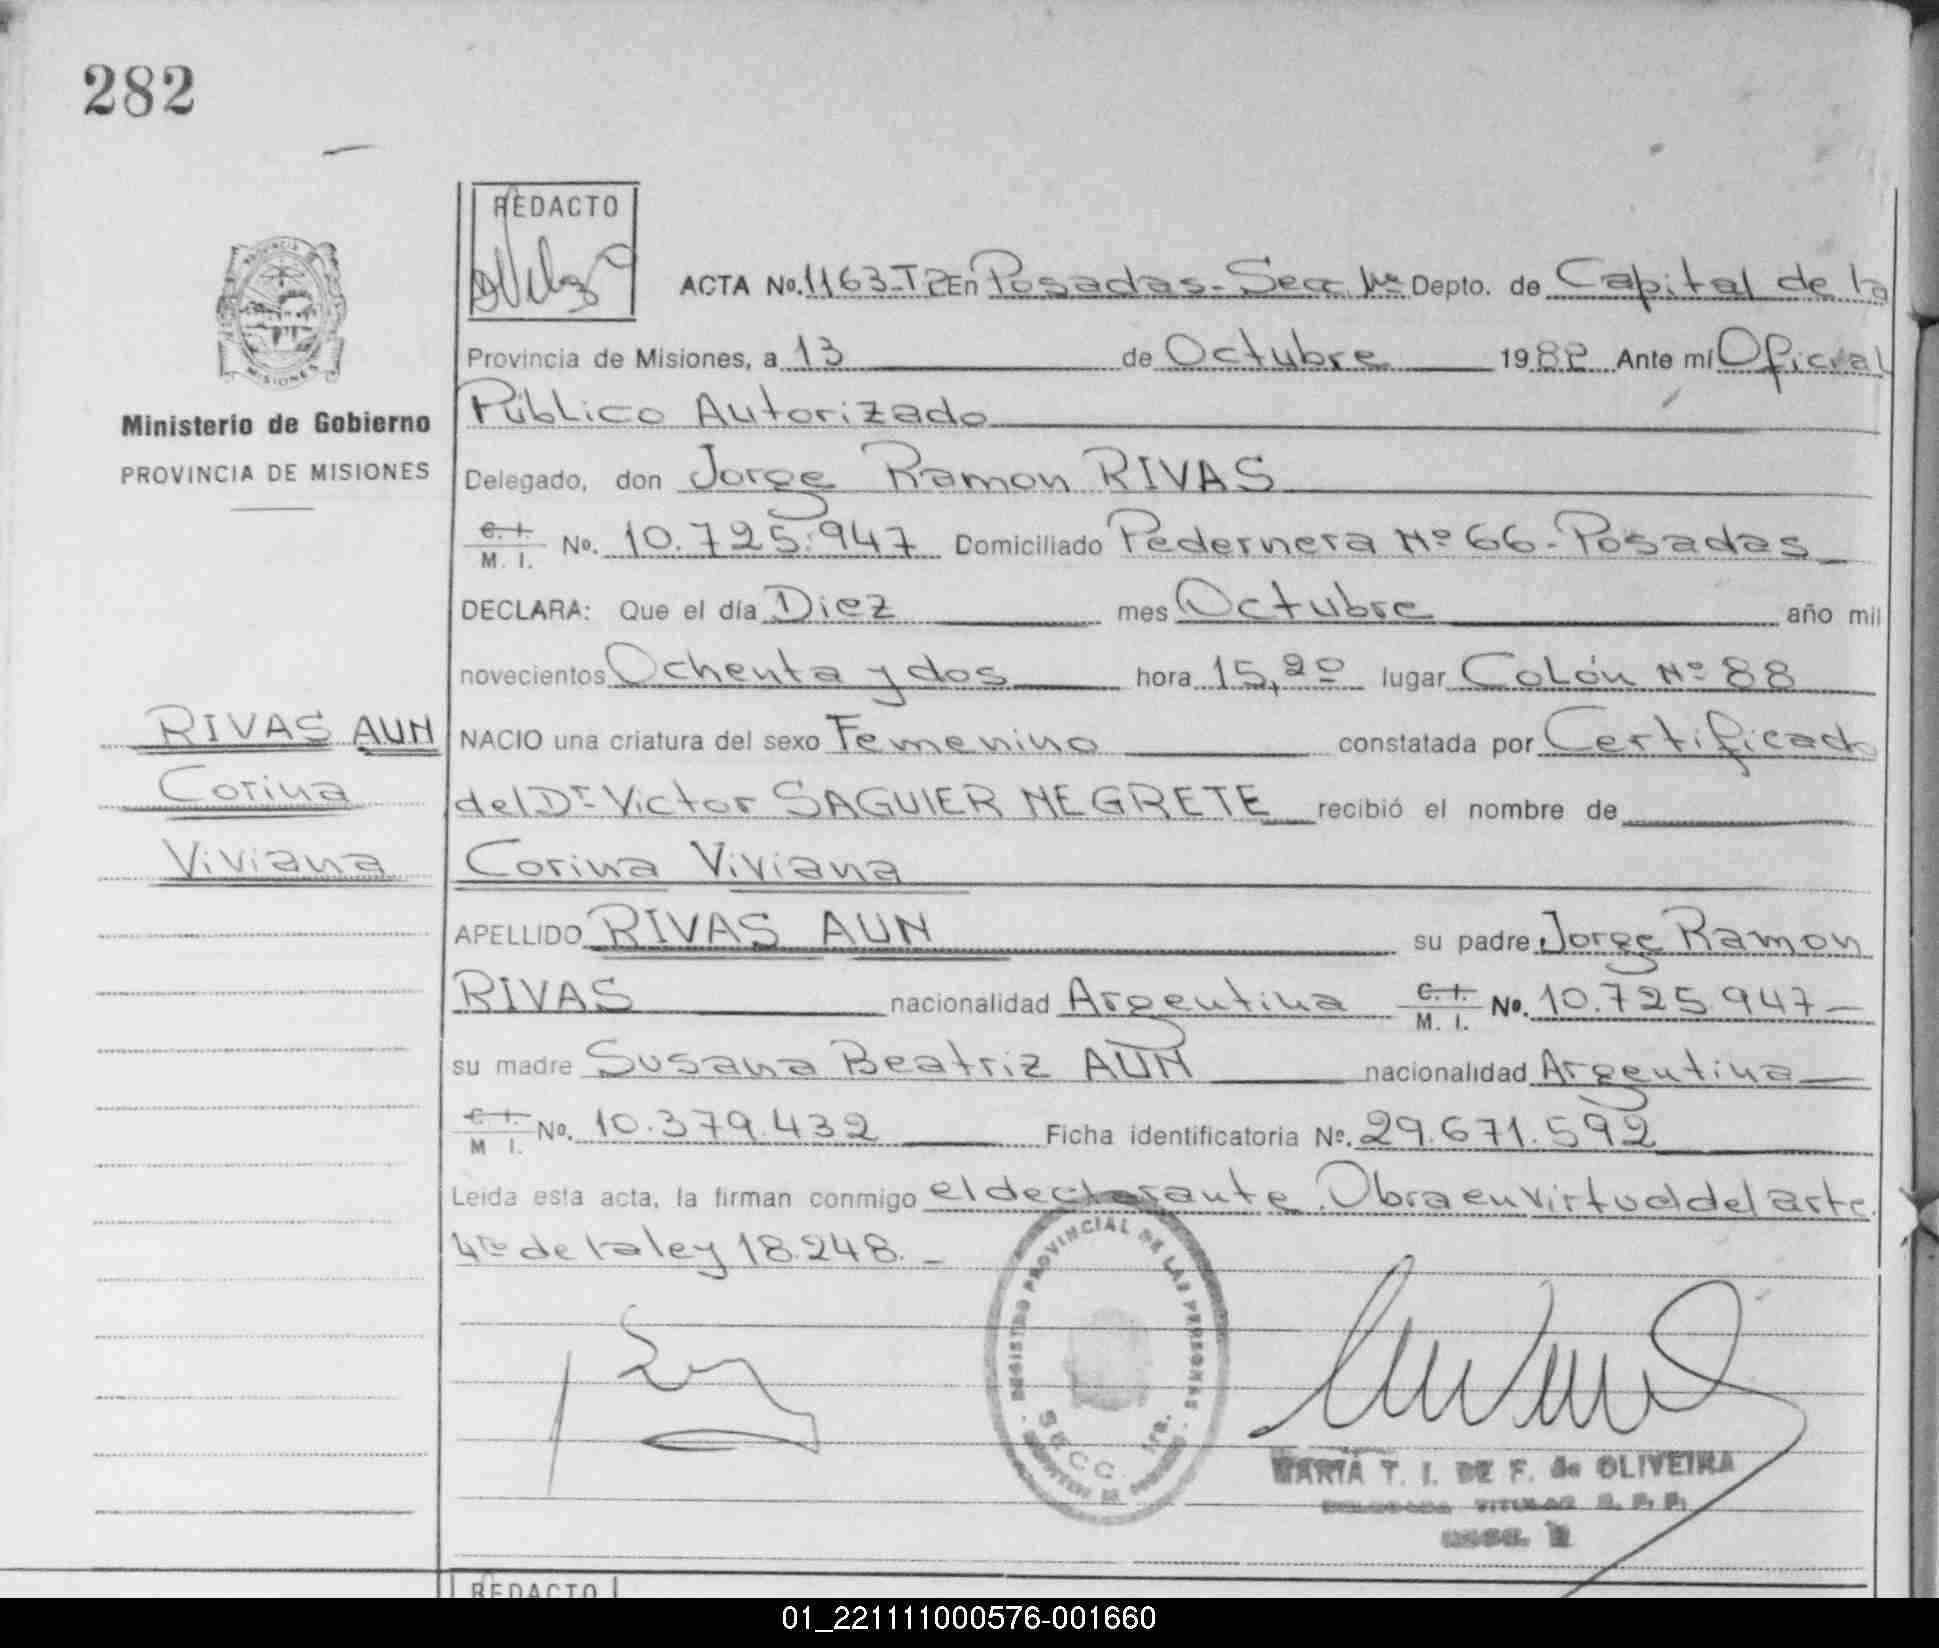 282
REDACTO
ACTA No. 1163-T2 En Posadas - Secc. 1ra Depto. de Capital de la
Provincia de Misiones, a 13 de Octubre 1982 Ante mí Oficial
Público Autorizado
Delegado, don Jorge Ramon RIVAS
C. I. M. I. No. 10.725.947 Domiciliado Pedernera Nº 66 - Posadas
DECLARA: Que el día Diez mes Octubre año mil
novecientos Ochenta y dos hora 15,20 lugar Colón Nº 88
NACIO una criatura del sexo Femenino constatada por Certificado
del Dr Victor SAGUIER NEGRETE recibió el nombre de
Corina Viviana
APELLIDO RIVAS AUN su padre Jorge Ramon
RIVAS nacionalidad Argentina C. I. M. I. No. 10.725.947 -
su madre Susana Beatriz AUN nacionalidad Argentina
C. I. M I. No. 10.379.432 Ficha identificatoria No. 29.671.592
Leída esta acta, la firman conmigo el declarante. Obra en virtud del arte.
4to de la ley 18.248. -
PROVINCIA
MISIONES
Ministerio de Gobierno
PROVINCIA DE MISIONES
RIVAS AUN
Corina
Viviana
REGISTRO PROVINCIAL DE LAS PERSONAS
SECC. 1ra.
MARIA T. I. DE F. de OLIVEIRA
TITULAR R. P. P.
REDACTO
01_221111000576-001660